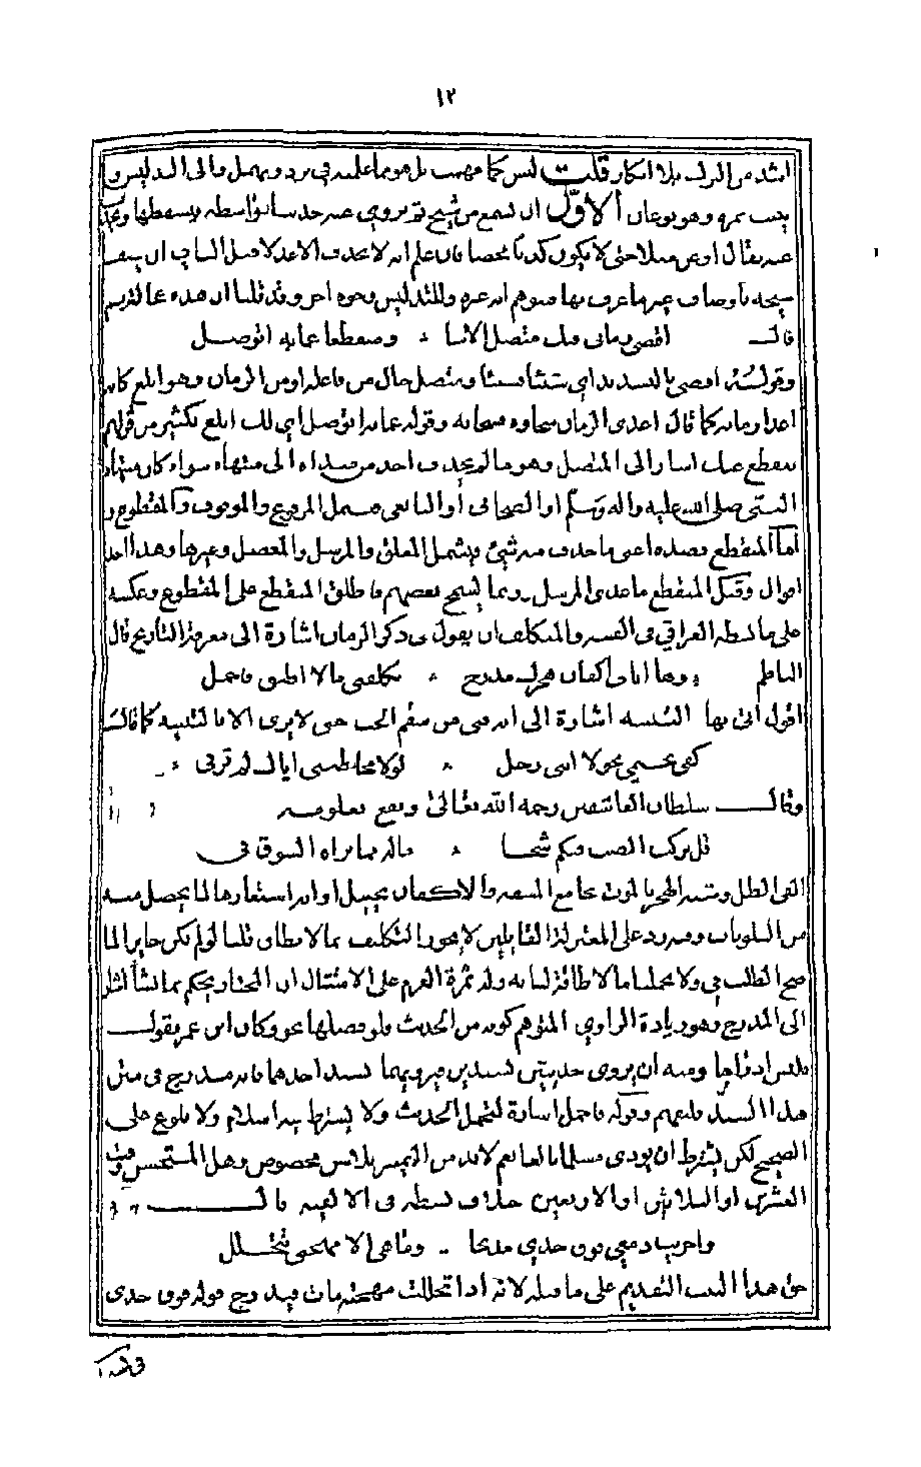 ١٢
اشد من الزنا بلا انكار قلت ليس كما فهمت بل هو مما علمت في يرد ويهمل والى التدليس و
وهو نوعان الاول ان يسمع من شيخ ثم يروي عنه حديثا بواسطة يسقطها
عنه بقال او عن مثلا حتى لا يكون كذبا محضا فان علم انه لا يحذف الا عدلا قبل الثاني ان يصف
شيخه باوصاف غيرها عرف بها فيتوهم انه غيره وللتدليس وجوه اخر وقد قلنا ان هذه
قال اقضي زماني فيك متصل الاسا ومنقطعا عما به اتوصل
وقوله اقضي بالتشديد اي شيئا فشيئا ومتصل حال من فاعله او من الزمان وهو ابلغ
اعدا زمانه كما قال اعدى الزمان سخاوه فسخا به وقوله عما به اتوصل اي اليك ابلغ بكثير من قولهم
منقطع عنك اشار الى المتصل وهو ما لم يحذف احد من مبتداه الى منتهاه سواء كان منتهاه
النبي صلى الله عليه واله وسلم او الصحابي او التابعي فيشمل المرفوع والموقوف والمقطوع و
اما المنقطع فضده اعني ما حذف منه شيئ فيشمل المعلق والمرسل والمعضل وغيرها وهذا احد
اقوال وقيل المنقطع ما عدى المرسل وربما يسمح بعضهم فاطلق المنقطع على المقطوع وعكسه
على ما نظمه العراقي في الفيته والمتكلف ان يقول في ذكر الزمان اشارة الى معرفة التاريخ قال
الناظم وها انا في اكفان هجرك مدرج تكلفني ما لا اطيق فاحمل
اقول اتى بها التنبيه اشارة الى انه فني من سقم الحب حتى لا يرى الا بالتنبيه كما قال
كفى بجسمي نحولا انني رجل لولا مخاطبتي اياك لم ترني
وقال سلطان العاشقين رحمه الله تعالى ونفع بعلومه
قل تركت الصب فيكم شبحا ماله مما براه الشوق في
الفي الظل وشبه الهجر بالموت بجامع المشقة والاكفان تخييل او انه استعارها لما يحصل منه
من البليات وفيه رد على المعتزلة القائلين لا يجوز التكليف بما لا يطاق قلنا لو لم يكن جايزا لما
صح الطلب في ولا تحملنا ما لا طاقة لنا به وله ثمرة العزم على الامتثال ان المختار يحكم بما يشا اشار
الى المدرج وهو زيادة الراوي المتوهم كونه من الحديث ولو فصلها نحو وكان ابن عمر يقول
ومنه ان يروى حديثين بسندين فيرويهما بسند احدهما فانه مدرج في متن
هذا السند فليفهم وقوله فاحمل اشارة لتحمل الحديث ولا يشترط فيه اسلام ولا بلوغ على
الصحيح لكن يشترط ان يودي مسلما بالغا نعم لابد من التمييز بلا سن مخصوص وهل المستحسن وقت
العشرين او الثلاثين او الاربعين خلاف نسطه في الالفية قال
واجريت دمعي فوق خدي مدبجا وما هي الا مهجتي تتحلل
حق هذا البيت التقديم على ما قبله لانه اذا تحللت مهجته مات فيدرج قوله فوق خدي